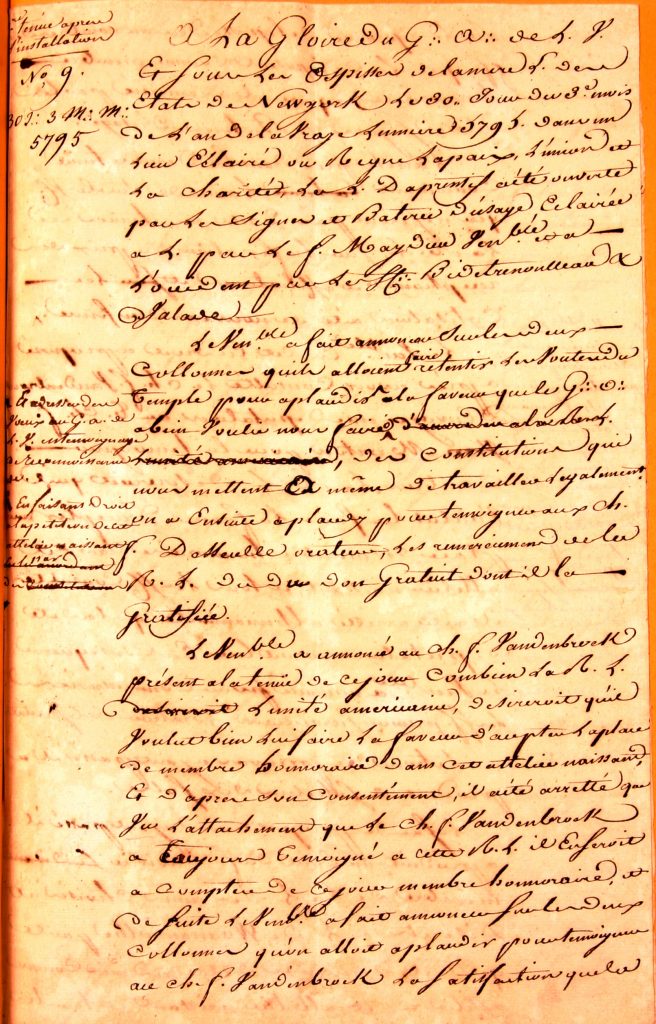 1re tenüe apres
l'installation
No. 9.
30 J.: 3 M.: M.:
5795
A La Gloire du G:: A:: de L. V.
Et sous Les Auspisses de la mere L. de
Etats de Newyork Le 30.. Jour du 3e. mois
de L'an de la Vraye Lumiere 5795. dans un
Lieu Eclairé ou Regne La paix, L'union et
La Charité, La L. D'aprentif a été ouverte
par Les Signes et Baterie d'usage Eclairée
a L. par Le f. Maydieu Ven.ble et a
L'occident par Les ff:: Bidetrenoulleau &
Salave
Le Ven.ble a fait annoncer Sur les deux
Collonnes qu'ils alloient faire retentir Les Voutes du
Temple pour aplaudir a la faveur que le G:: A::
a bien Voulu nous faire d'accorder a la R. L.
L'unité américaine, des Constitutions qui
nous mettent a même de travailler Legalement
on a Ensuite aplaudy pour temoigner aux Ch.
f. Dasseulle orateur, Les remerciement de la
R. L. du don Gratuit dont il la
Gratifiée.
Et adresser des
Voeux au G. A. de
L. V. en temoignage
de reconnoissance
En faisans Droit
a la petition de cet
attelier naissant
Le Ven.ble a annoncé au Ch. f. Vandenbroek
présent a la tenüe de ce jour Combien La R. L.
desireroit L'unité américaine, desireroit qu'il
Voulut bien Lui faire La faveur d'accepter La place
de membre honnoraire dans cet attelier naissant,
Et d'apres son Consentement, il a été arretté que
Vu L'attachement que Le Ch. f. Vandenbroek
a toujour temoigné a cette R. L. il En seroit
a Compter de ce jour membre honnoraire, et
de suite Le Ven.ble a fait annoncer Sur les deux
Collonnes qu'on alloit aplaudir pour temoigner
au Ch. f. Vandenbroek La Satisfaction que la